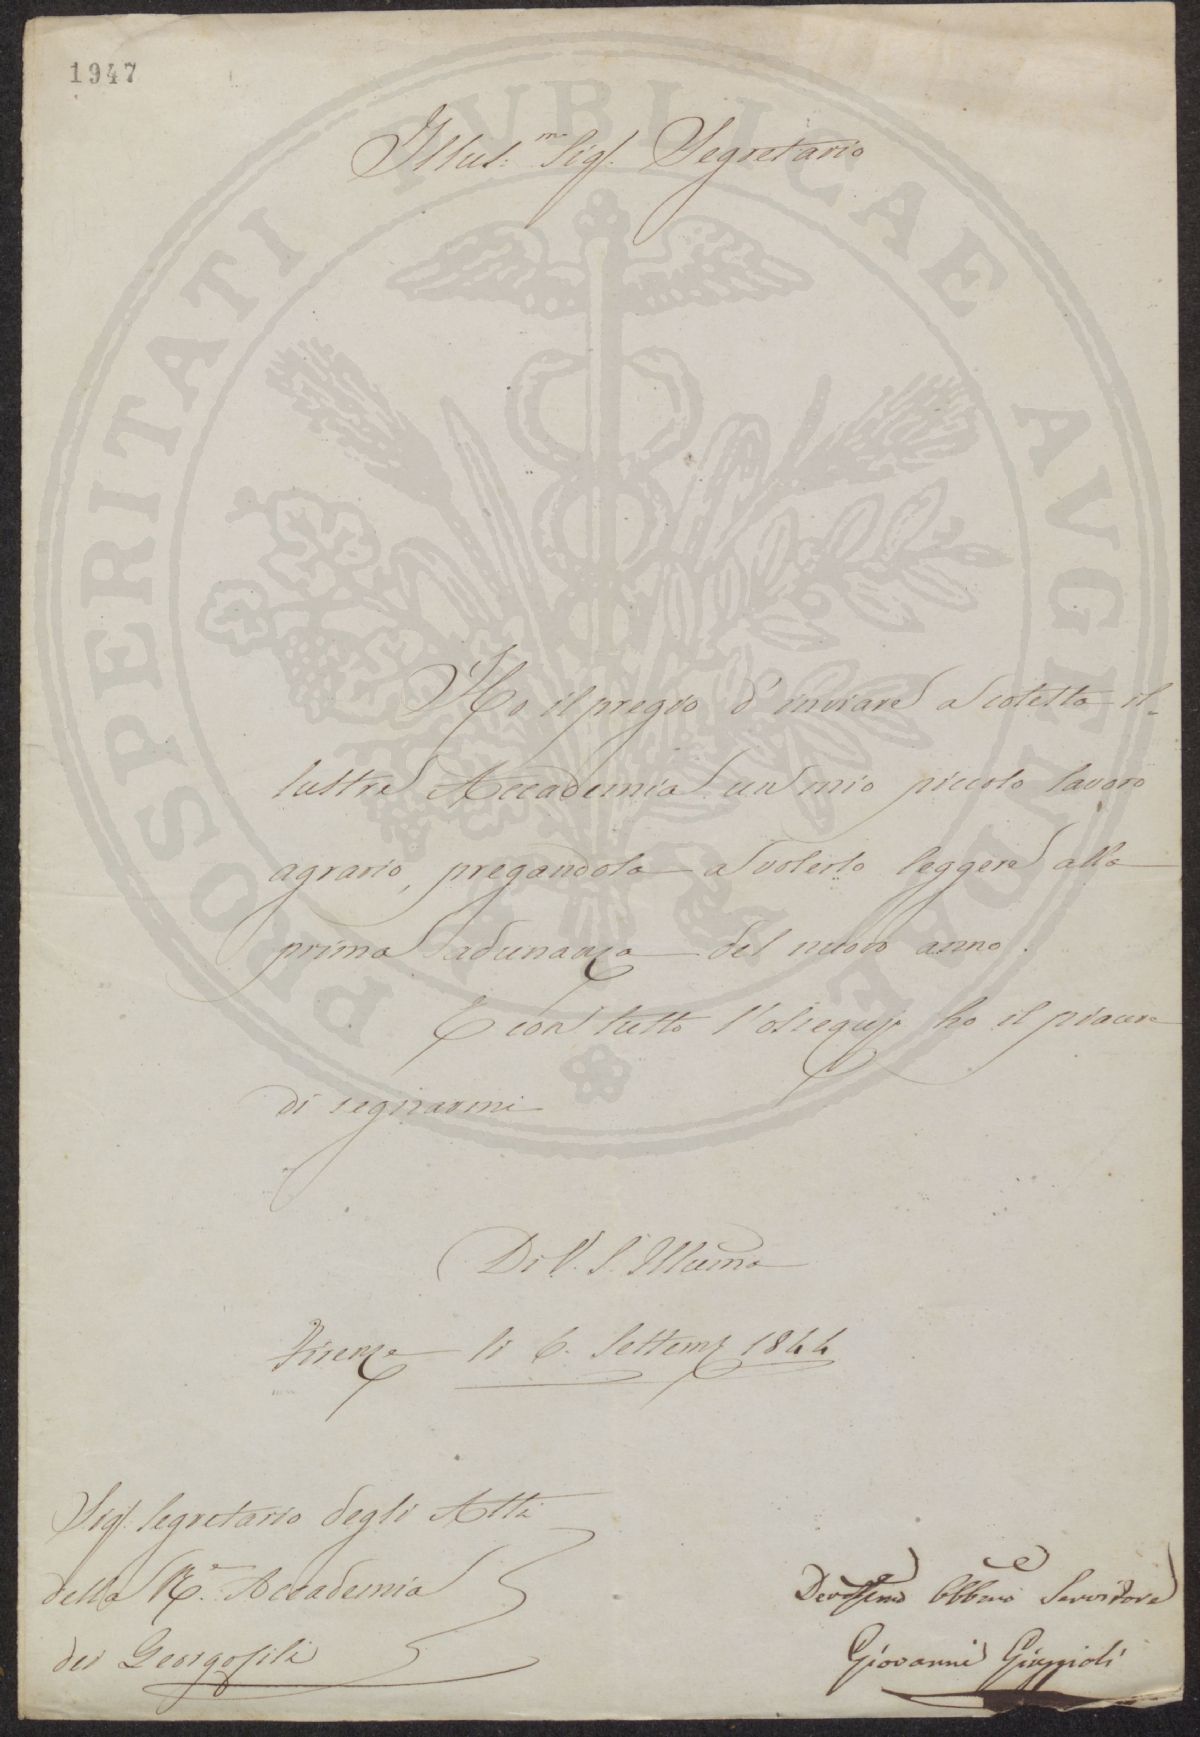 1947
Illus.mo Sigr. Segretario
Ho il pregio d'inviare a cotesta il-
lustre Accademia un mio piccolo lavoro
agrario, pregandola a volerlo leggere alla
prima adunanza del nuovo anno.
E con tutto l'ossequio ho il piacere
di segnarmi
Di V. S. Illuma
Firenze li 6. Settemb 1844
Sigr. Segretario degli Atti
della R.e Accademia
dei Georgofili
Devmo Obbmo Servitore
Giovanni
PROSPERITATI PVBLICAE AVGENDAE